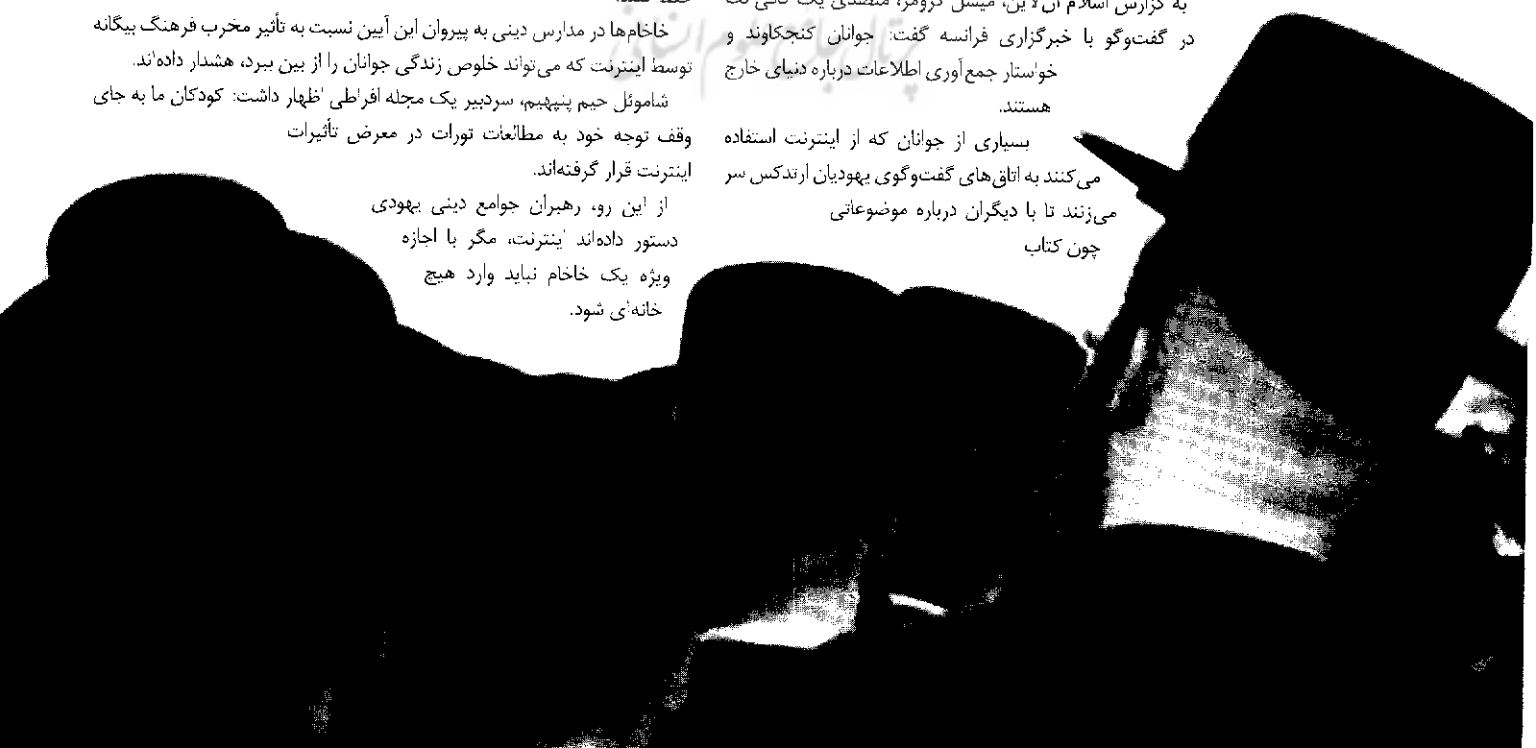 به گزارش اسلام آن لاین، میشل کروفر، متصدی یک کافی نت
در گفت‌وگو با خبرگزاری فرانسه گفت: جوانان کنجکاوند و
خواستار جمع‌آوری اطلاعات درباره دنیای خارج
هستند.
بسیاری از جوانان که از اینترنت استفاده
می‌کنند به اتاق‌های گفت‌وگوی یهودیان ارتدکس سر
می‌زنند تا با دیگران درباره موضوعاتی
چون کتاب
خاخام‌ها در مدارس دینی به پیروان این آیین نسبت به تأثیر مخرب فرهنگ بیگانه
توسط اینترنت که می‌تواند خلوص زندگی جوانان را از بین ببرد، هشدار داده‌اند.
شاموئل حیم پنپهیم، سردبیر یک مجله افراطی اظهار داشت: کودکان ما به جای
وقف توجه خود به مطالعات تورات در معرض تأثیرات
اینترنت قرار گرفته‌اند.
از این رو، رهبران جوامع دینی یهودی
دستور داده‌اند اینترنت، مگر با اجازه
ویژه یک خاخام نباید وارد هیچ
خانه‌ای شود.